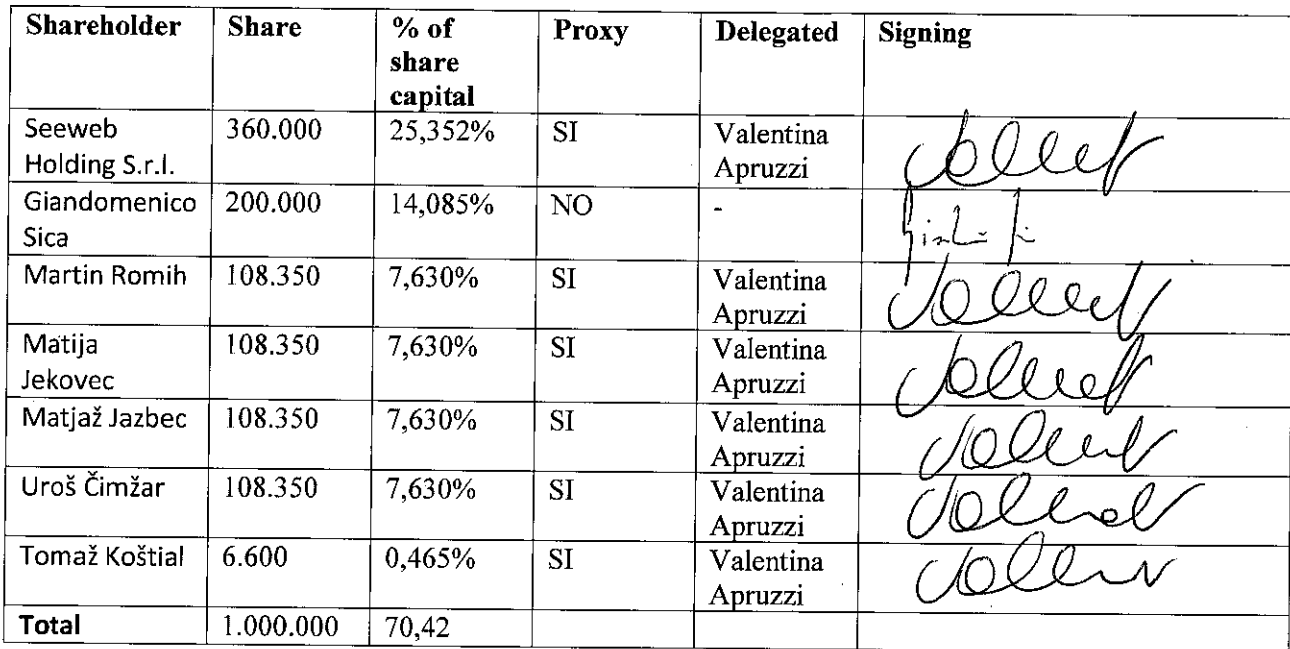 Shareholder Share % of share capital Proxy Delegated Signing
Seeweb Holding S.r.l. 360.000 25,352% SI Valentina Apruzzi
Giandomenico Sica 200.000 14,085% NO -
Martin Romih 108.350 7,630% SI Valentina Apruzzi
Matija Jekovec 108.350 7,630% SI Valentina Apruzzi
Matjaž Jazbec 108.350 7,630% SI Valentina Apruzzi
Uroš Čimžar 108.350 7,630% SI Valentina Apruzzi
Tomaž Koštial 6.600 0,465% SI Valentina Apruzzi
Total 1.000.000 70,42